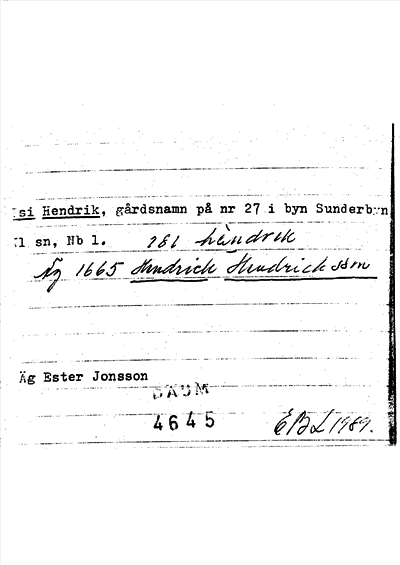 si Hendrik, gårdsnamn på nr 27 i byn Sunderbyn
sn, Nb l. 281 hèndrek
Äg 1665 Hendrich Hendrichsson
Äg Ester Jonsson
DAUM
4645
EBL 1989.